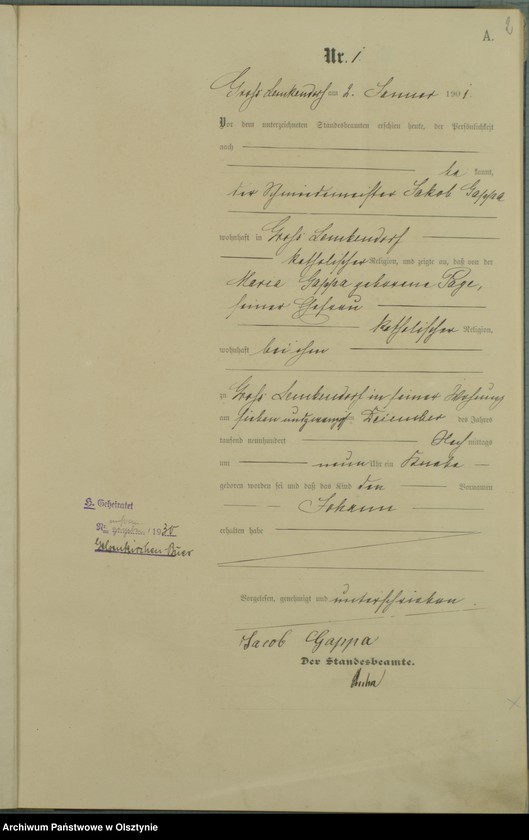 A. 2
Nr. 1
Groß Lemkendorf am 2. Januar 1901.
Vor dem unterzeichneten Standesbeamten erschien heute, der Persönlichkeit
nach
bekannt,
der Schmiedemeister Jakob Gappa
wohnhaft in Groß Lemkendorf
katholischer Religion, und zeigte an, daß von der
Maria Gappa geborene Page,
seiner Ehefrau
katholischer Religion,
wohnhaft bei ihm
zu Groß Lemkendorf in seiner Wohnung
am sieben und zwanzigsten Dezember des Jahres
tausend neunhundert Nachmittags
um neun Uhr ein Knabe
geboren worden sei und daß das Kind den Vornamen
Johann
erhalten habe
H. Geheiratet
Nr. 1930
Gelsenkirchen-Buer
Vorgelesen, genehmigt und unterschrieben.
Jacob Gappa
Der Standesbeamte.
Archiwum Państwowe w Olsztynie